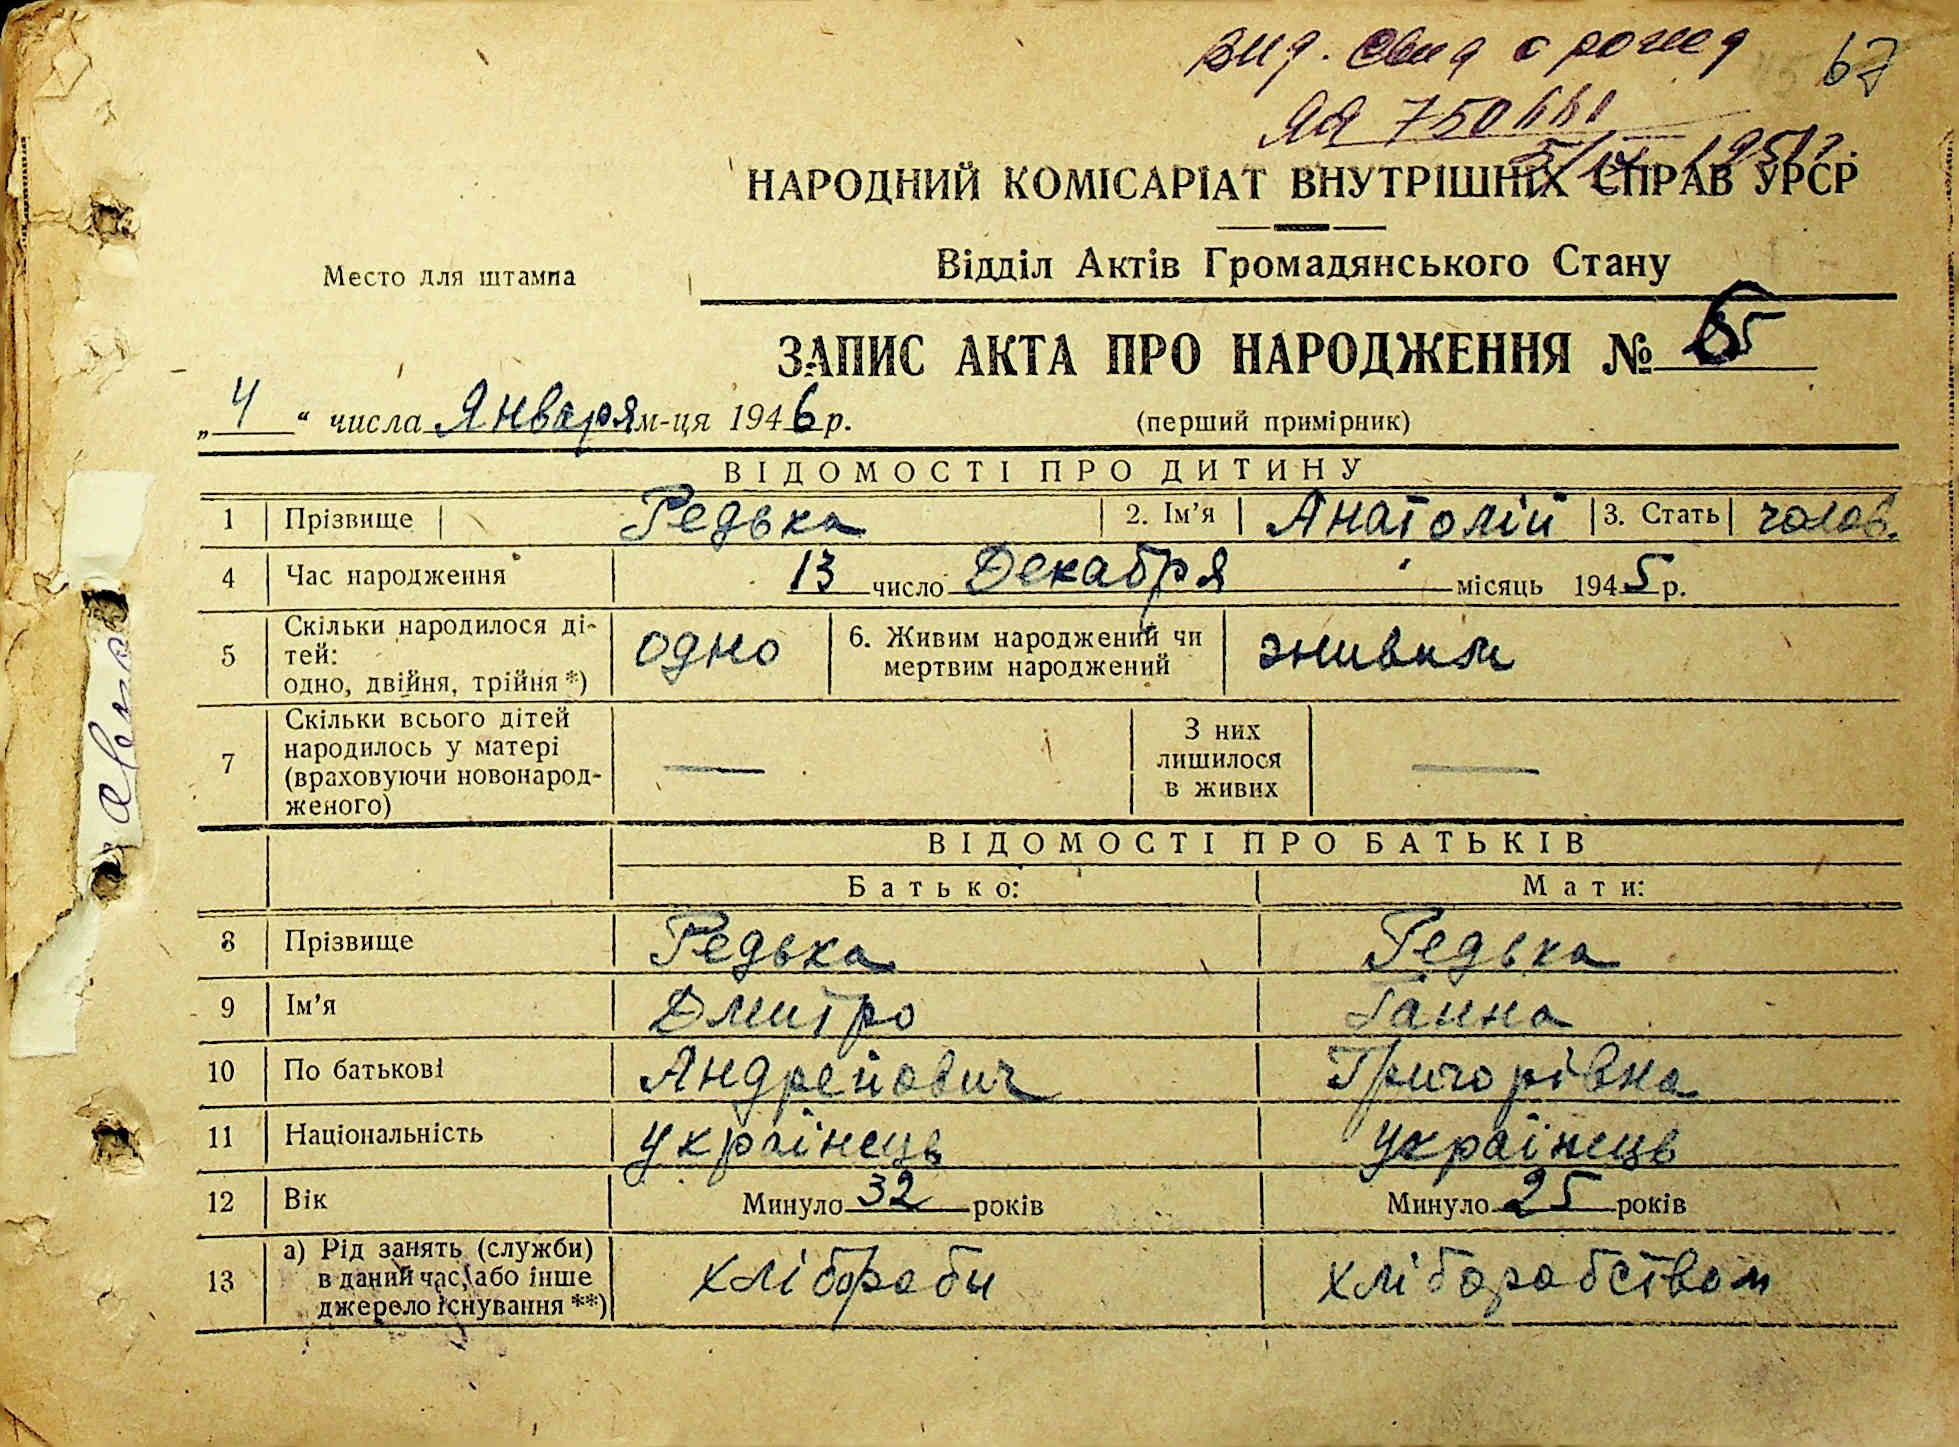 вид. свид о рожд 67
ЯЯ 750
195 г.
НАРОДНИЙ КОМІСАРІАТ ВНУТРІШНІХ СПРАВ УРСР
Место для штампа
Відділ Актів Громадянського Стану
ЗАПИС АКТА ПРО НАРОДЖЕННЯ № 65
„4“ числа Января м-ця 1946 р. (перший примірник)
ВІДОМОСТІ ПРО ДИТИНУ
1 Прізвище Редька 2. Ім'я Анатолій 3. Стать чолов.
4 Час народження 13 число Декабря місяць 1945 р.
5 Скільки народилося ді-
тей:
одно, двійня, трійня *) одно 6. Живим народжений чи
мертвим народжений живим
7 Скільки всього дітей
народилось у матері
(враховуючи новонарод-
женого) — З них
лишилося
в живих —
ВІДОМОСТІ ПРО БАТЬКІВ
Батько: Мати:
8 Прізвище Редька Редька
9 Ім'я Дмитро Ганна
10 По батькові Андрейович Григорівна
11 Національність українець українець
12 Вік Минуло 32 років Минуло 25 років
13 а) Рід занять (служби)
в даний час, або інше
джерело існування **) хлібороби хліборобством